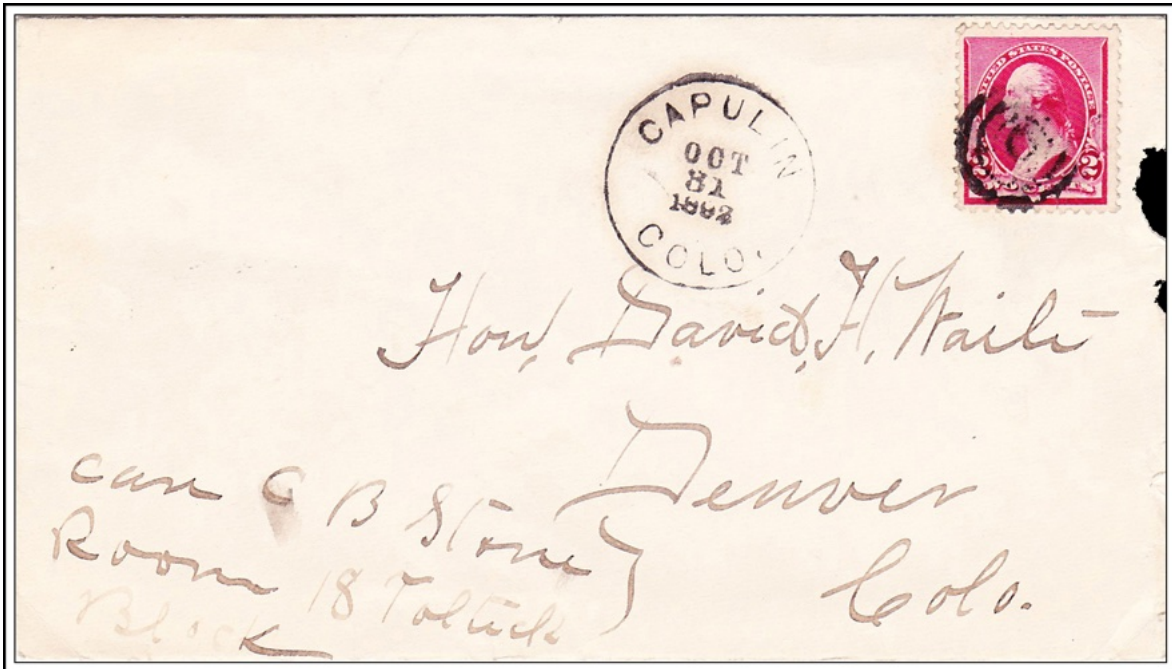 UNITED STATES POSTAGE
2
CAPULIN
OCT
31
1892
COLO.
Hon. David, H, Waite
Denver
Colo.
care C B Stone
Room 18
Block